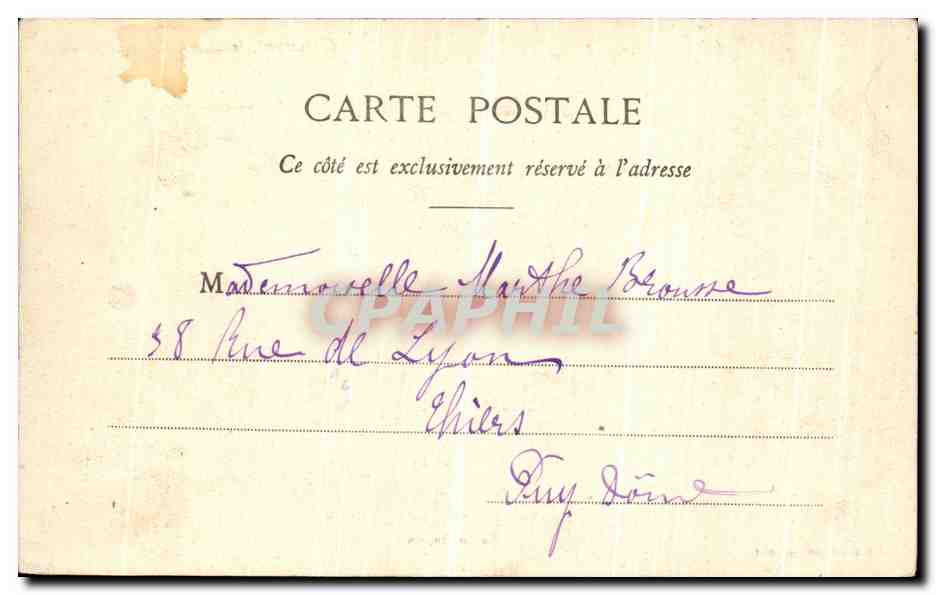 CARTE POSTALE
Ce côté est exclusivement réservé à l'adresse
Mademoiselle Marthe Brousse
CPAPHIL
38 Rue de Lyon
Thiers
Puy Dôme